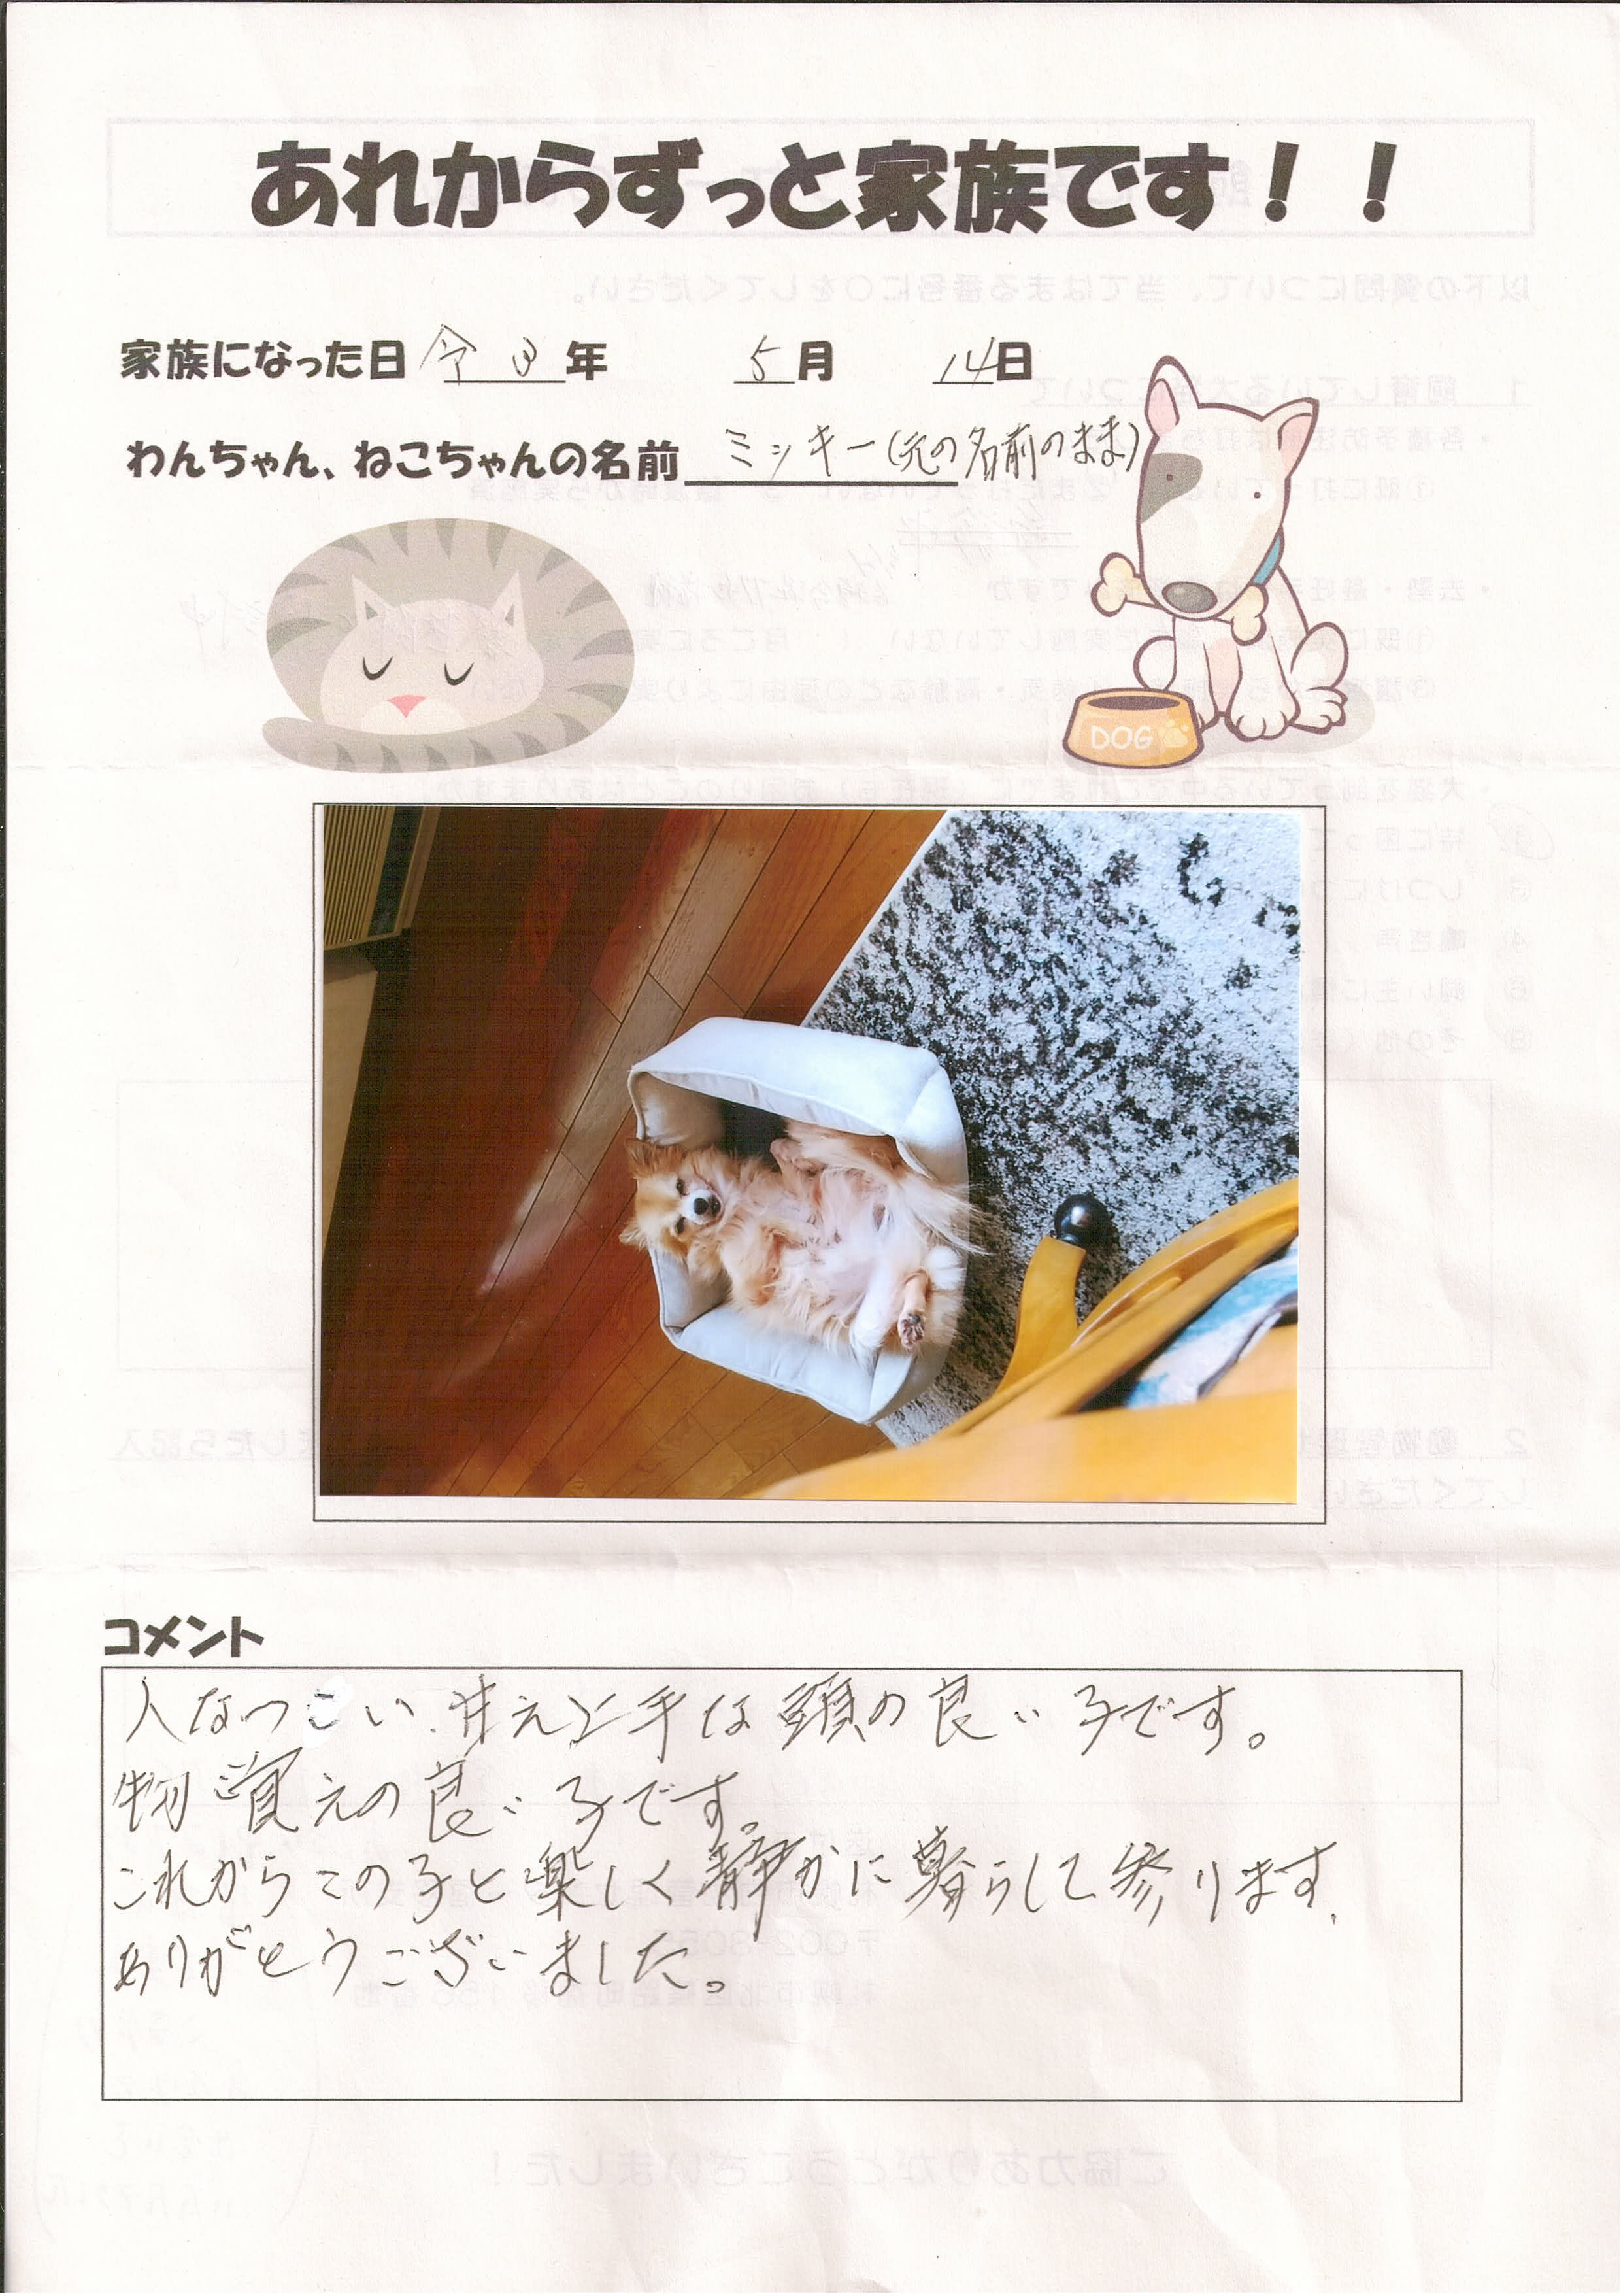 あれからずっと家族です！！
家族になった日 令 3 年 5 月 14 日
わんちゃん、ねこちゃんの名前 ミッキー(元の名前のまま)
DOG
コメント
人なつこい、甘え上手な頭の良い子です。
物覚えの良い子です。
これからこの子と楽しく静かに暮らして参ります.
ありがとうございました。